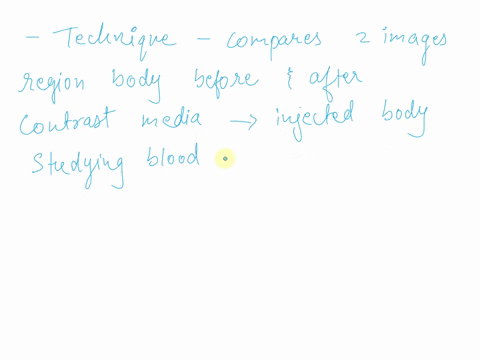 - Technique - compares 2 images
region body before & after
Contrast media → injected body
Studying blood